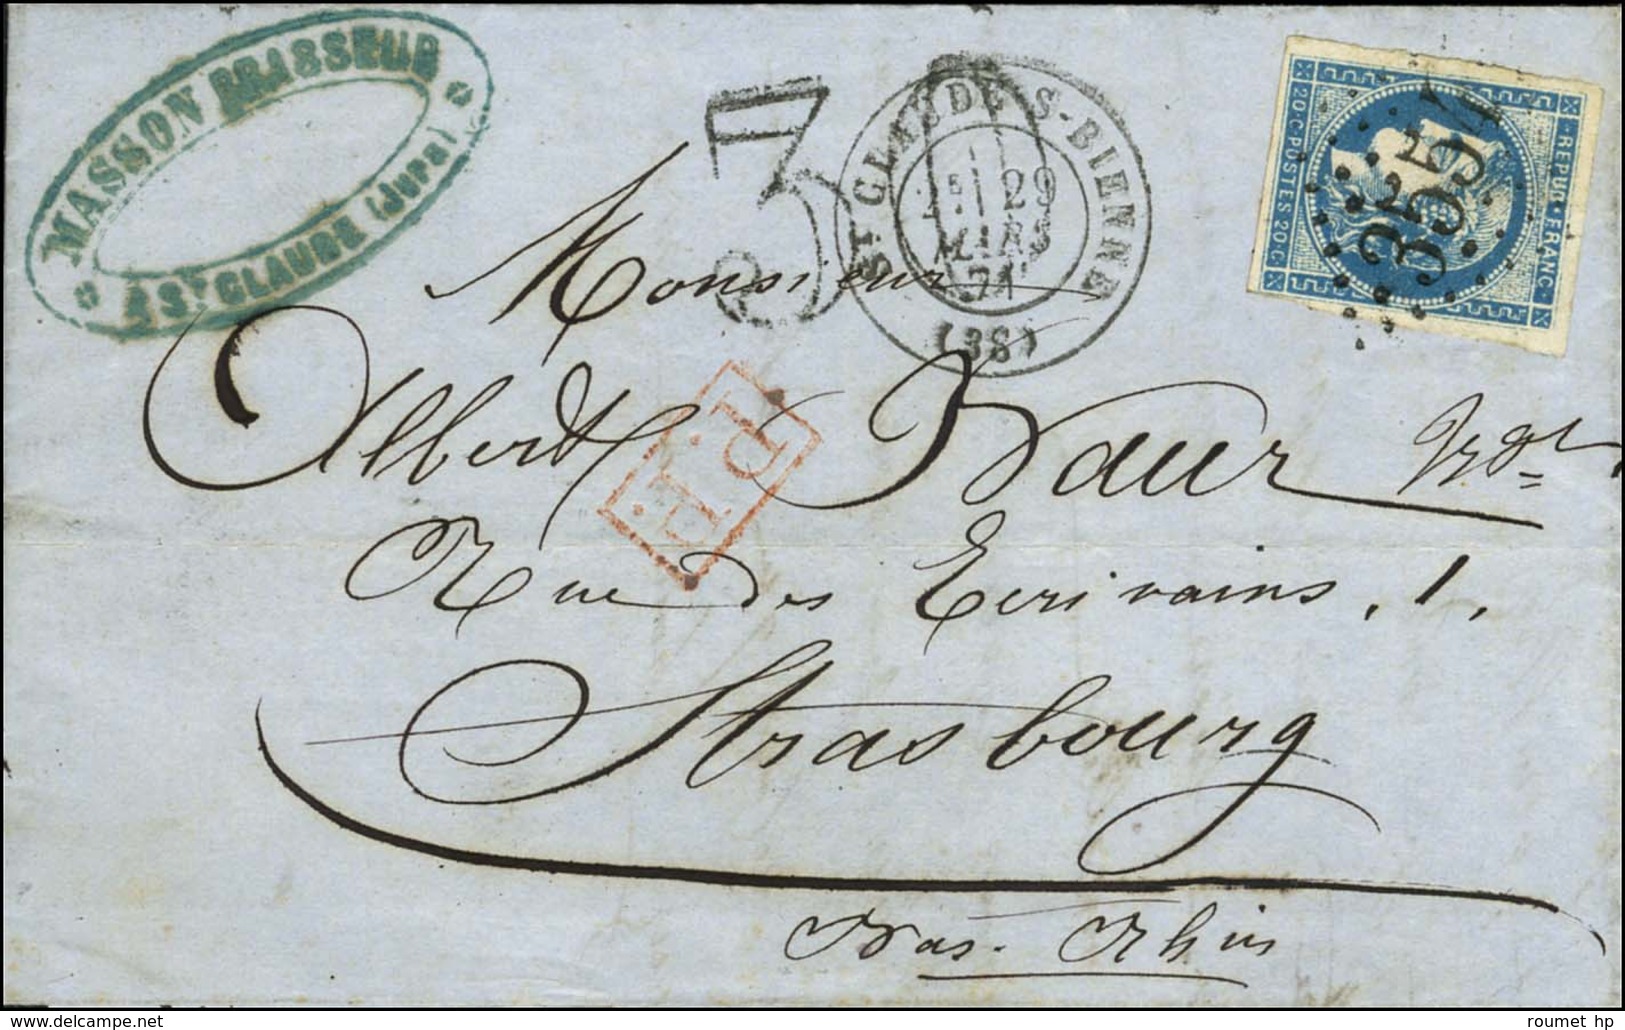 MASSON BRASSEUR
A ST CLAUDE (Jura)
ST CLAUDE S-BIENNE
29
MARS
71
(38)
REPUB·FRANC·
20·C·POSTES 20·C·
3554
P.P.
Monsieur
Albert Baur
Rue des Ecrivains, 1,
Strasbourg
Bas-Rhin
roumet hp
www.delcampe.net